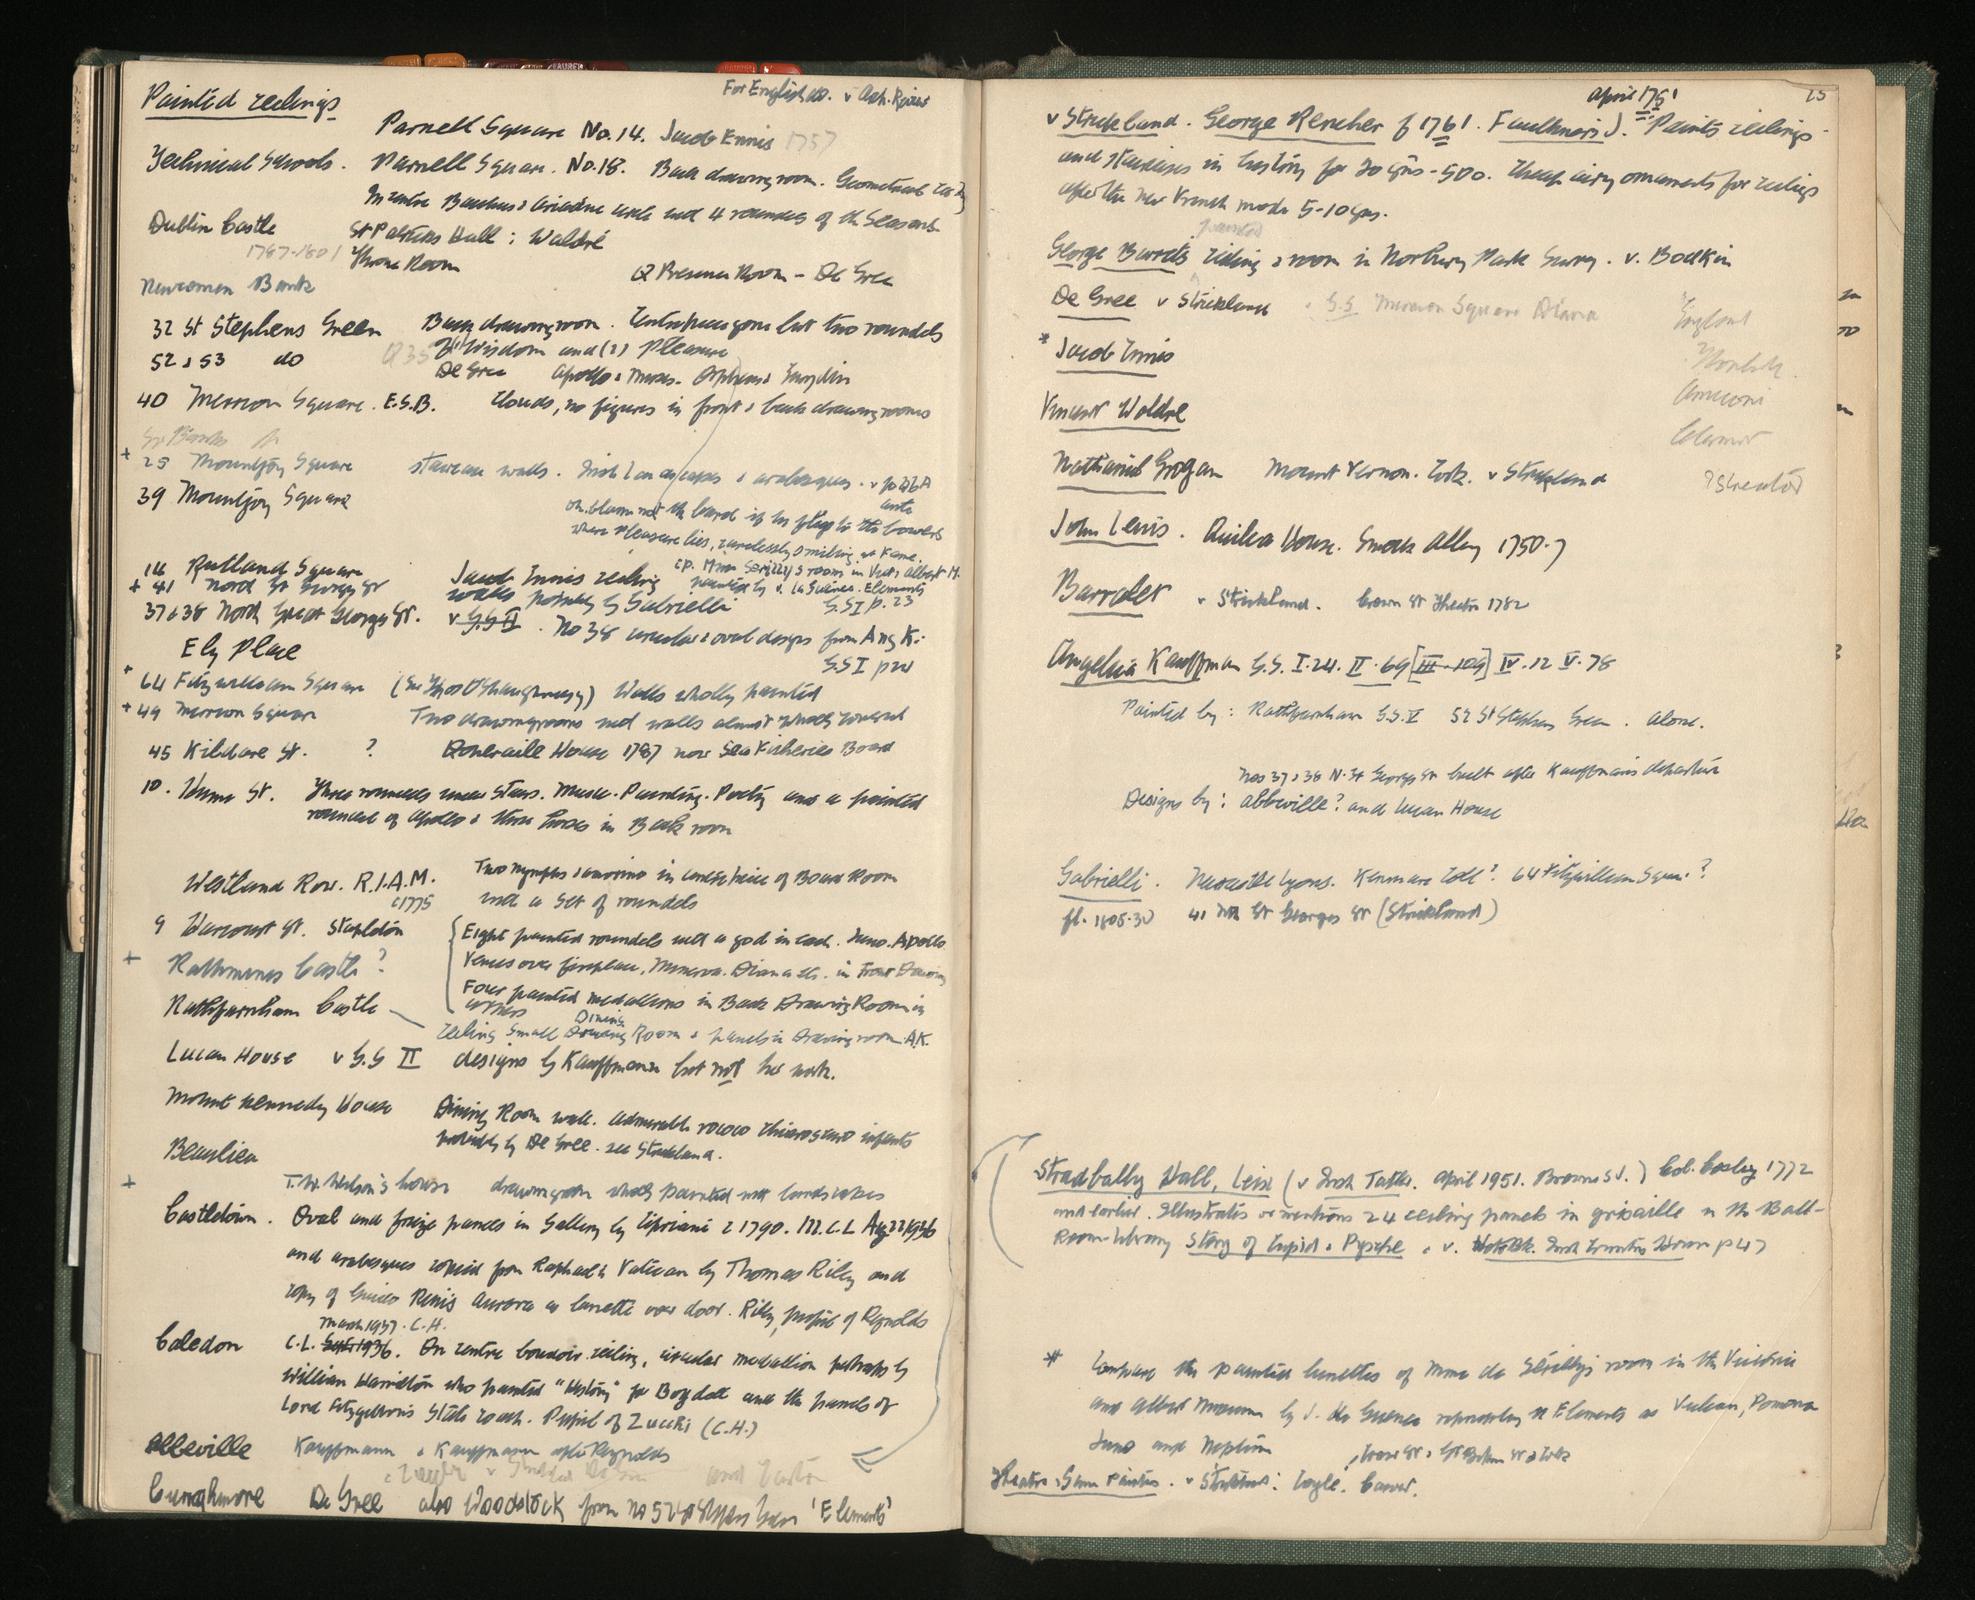 Painted ceilings
For English do. v Arch. Review
Parnell Square No.14. Jacob Ennis 1757
Technical Schools. Parnell Square. No.18. Back drawing room. Geometrical
In centre Bacchus & Ariadne and 4 roundels of the Seasons
Dublin Castle St Patricks Hall: Waldré
1787-1801 Throne Room
Q Presence Room - De Gree
Newcomen Bank
32 St Stephens Green Back drawing room. Centrepiece gone but two roundels
(1) Wisdom and (2) Pleasure
52 & 53 do De Gree Apollo & Muses. Orpheus & Eurydice
40 Merrion Square. E.S.B. Clouds, no figures in front & back drawing rooms
+ 25 Mountjoy Square staircase walls. Irish Landscapes & arabesques. v p 26A
ante
39 Mountjoy Square
oh. blame not the bard if he fly to the bowers
where Pleasure lies, carelessly smiling at Fame.
14 Rutland Square Jacob Ennis ceiling cp. Mme Serilly's room in Vict & Albert M.
painted by v. La Guenee. Elements
+ 41 North Gt Georges St walls painted by Gabrielli G.S I p. 23
37 & 38 North Great Georges St. v G.S II. No 38 circular & oval designs from Ang K.
G.S I p 20
Ely Place
+ 64 Fitzwilliam Square (Sir Thos O'Shaughnessy) Walls wholly painted
+ 49 Merrion Square Two drawingrooms with walls almost wholly covered
45 Kildare St. ? Doneraile House 1787 now Sea Fisheries Board
10. Hume St. Three roundels under stairs. Music. Painting. Poetry and a painted
roundel of Apollo & three horses in Back room
Westland Row. R.I.A.M. Two nymphs & amorino in centre piece of Board Room
c1775 with a set of roundels
9 Harcourt St. Stapleton Eight painted roundels with a god in each. Juno. Apollo
Venus over fireplace, Minerva. Diana etc. in Front Drawing
+ Rathmines Castle?
Four painted medallions in Back Drawing Room in
corners
Rathfarnham Castle
Dining
Ceiling Small Drawing Room & panels in Drawing room A.K.
Lucan House v G.S II designs by Kauffmann but not her work.
Mount Kennedy House Dining Room walls. Admirable rococo chiaroscuro infants
probably by De Gree. see Strickland.
Beaulieu
+ T.W. Wilson's house drawing room wholly painted with landscapes
Castletown. Oval and frieze panels in Gallery by Cipriani c 1790. M. C.L Aug 22 1936
and arabesques copied from Raphael's Vatican by Thomas Riley and
copy of Guido Renis Aurora as lunette over door. Riley, pupil of Reynolds
March 1937. C.H.
Caledon C.L. Sept 1936. On centre boudoir ceiling, circular medallion perhaps by
William Hamilton who painted "History" for Boydell and the panels of
Lord Fitzgibbon's State coach. Pupil of Zucchi (C.H.)
Abbeville Kauffmann & Kauffmann after Reynolds
Curraghmore De Gree also Woodstock from no 52 St Stephens Green 'Elements'
April 1751
25
v Strickland. George Rencher f 1761. Faulkners J. Paints ceilings
and staircases in history for 20 gns - 500. Cheap airy ornaments for ceilings
after the new French mode 5-10 gns.
painted
George Barrets ceiling & room in Norbury Park Surrey. v. Bodkin
De Gree v Strickland. G.S. Merrion Square Diana
England
* Jacob Ennis
Amiconi
Vincent Waldre
Clermont
Nathaniel Grogan Mount Vernon. Cork. v Strickland
? Streator
John Lewis. Quilca House. Smock Alley 1750-7
Barralet v Strickland. Crown St Theatre 1782
Angelica Kauffman G.S. I. 24. II. 69 [III-109] IV. 12 V. 78
Painted by: Rathfarnham G.S. V 52 St Stephens Green. Alone.
Nos 37 & 38 N. Gt Georges St built after Kauffmans departure
Designs by: Abbeville? and Lucan House
Gabrielli. Newcastle Lyons. Kenmare Coll? 64 Fitzwilliam Square?
fl. 1805-30 41 Nth Gt Georges St (Strickland)
Stradbally Hall, Leix (v Irish Tatler. April 1951. Browne S.J.) Col. Cosby 1772
and earlier. Illustrates or mentions 24 ceiling panels in grisaille in the Ball-
Room-library Story of Cupid & Psyche. v. Irish Countries Homes p 47
* Compare the painted lunettes of Mme de Sérilly's room in the Victoria
and Albert Museum by J. de la Guenee representing the Elements as Vulcan, Pomona
Juno and Neptune
Theatre Scene Painters. v Strickland: Coyle. Carver.